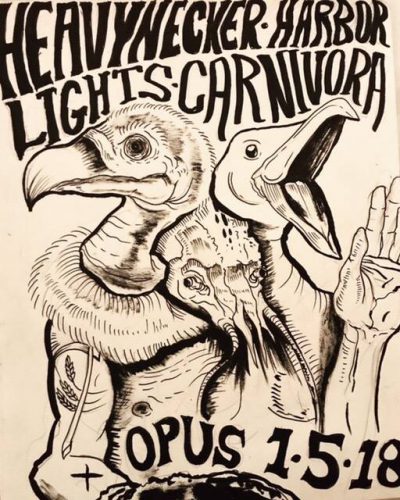 HEAVYNECKER·HARBOR
LIGHTS·CARNIVORA
OPUS 1·5·18